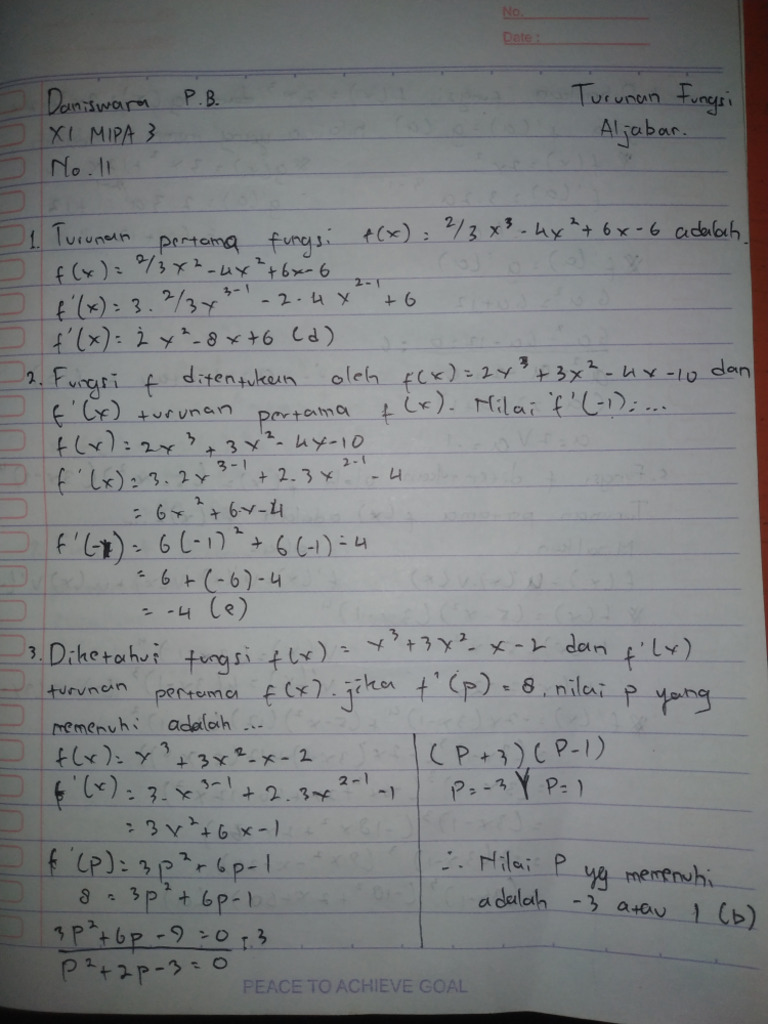 No.
Date :
Daniswara P.B.
Turunan Fungsi
XI MIPA 3
Aljabar.
No. 11
1. Turunan pertama fungsi f(x) = 2/3 x³ - 4x² + 6x - 6 adalah.
f(x) = 2/3 x² - 4x² + 6x - 6
f'(x) = 3 . 2/3 x³⁻¹ - 2 . 4 x²⁻¹ + 6
f'(x) = 2 x² - 8x + 6 (d)
2. Fungsi f ditentukan oleh f(x) = 2x³ + 3x² - 4x - 10 dan
f'(x) turunan pertama f(x). Nilai f'(-1) = ...
f(x) = 2x³ + 3x² - 4x - 10
f'(x) = 3 . 2x³⁻¹ + 2 . 3x²⁻¹ - 4
= 6x² + 6x - 4
f'(-1) = 6(-1)² + 6(-1) - 4
= 6 + (-6) - 4
= -4 (e)
3. Diketahui fungsi f(x) = x³ + 3x² - x - 2 dan f'(x)
turunan pertama f(x). jika f'(p) = 8, nilai p yang
memenuhi adalah ...
f(x) = x³ + 3x² - x - 2
f'(x) = 3 . x³⁻¹ + 2 . 3x²⁻¹ - 1
= 3x² + 6x - 1
f'(p) = 3p² + 6p - 1
8 = 3p² + 6p - 1
3p² + 6p - 9 = 0 : 3
p² + 2p - 3 = 0
(P + 3) (P - 1)
P = -3 V P = 1
∴ Nilai P yg memenuhi
adalah -3 atau 1 (b)
PEACE TO ACHIEVE GOAL